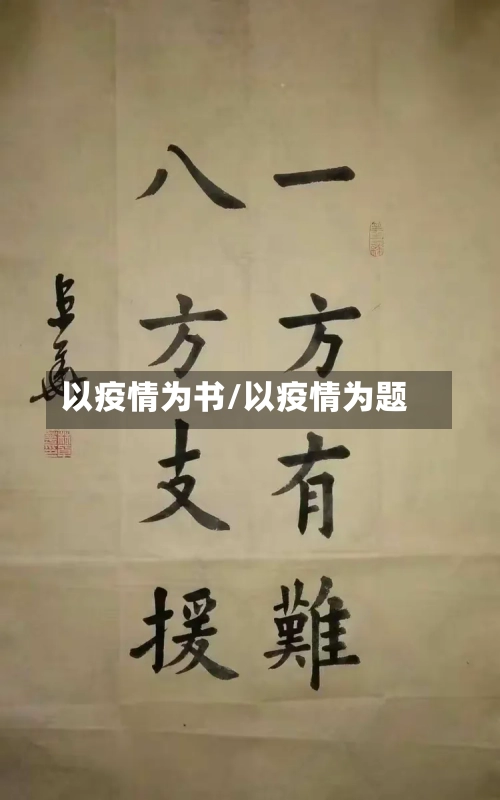 一方有難
八方支援
以疫情为书/以疫情为题